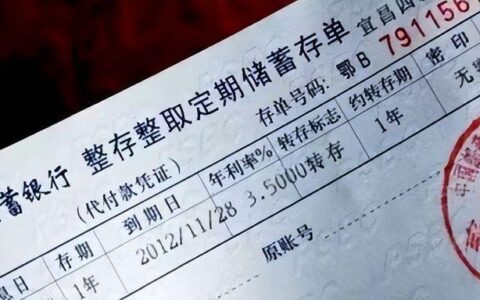 宜昌四
存单号码: 鄂B 7911156
蓄银行 整存整取定期储蓄存单
(代付款凭证)
息日 存期 到期日 年利率% 转存标志 约转存期 密印
1年 2012/11/28 3.5000 转存 1年 无
原账号
中国